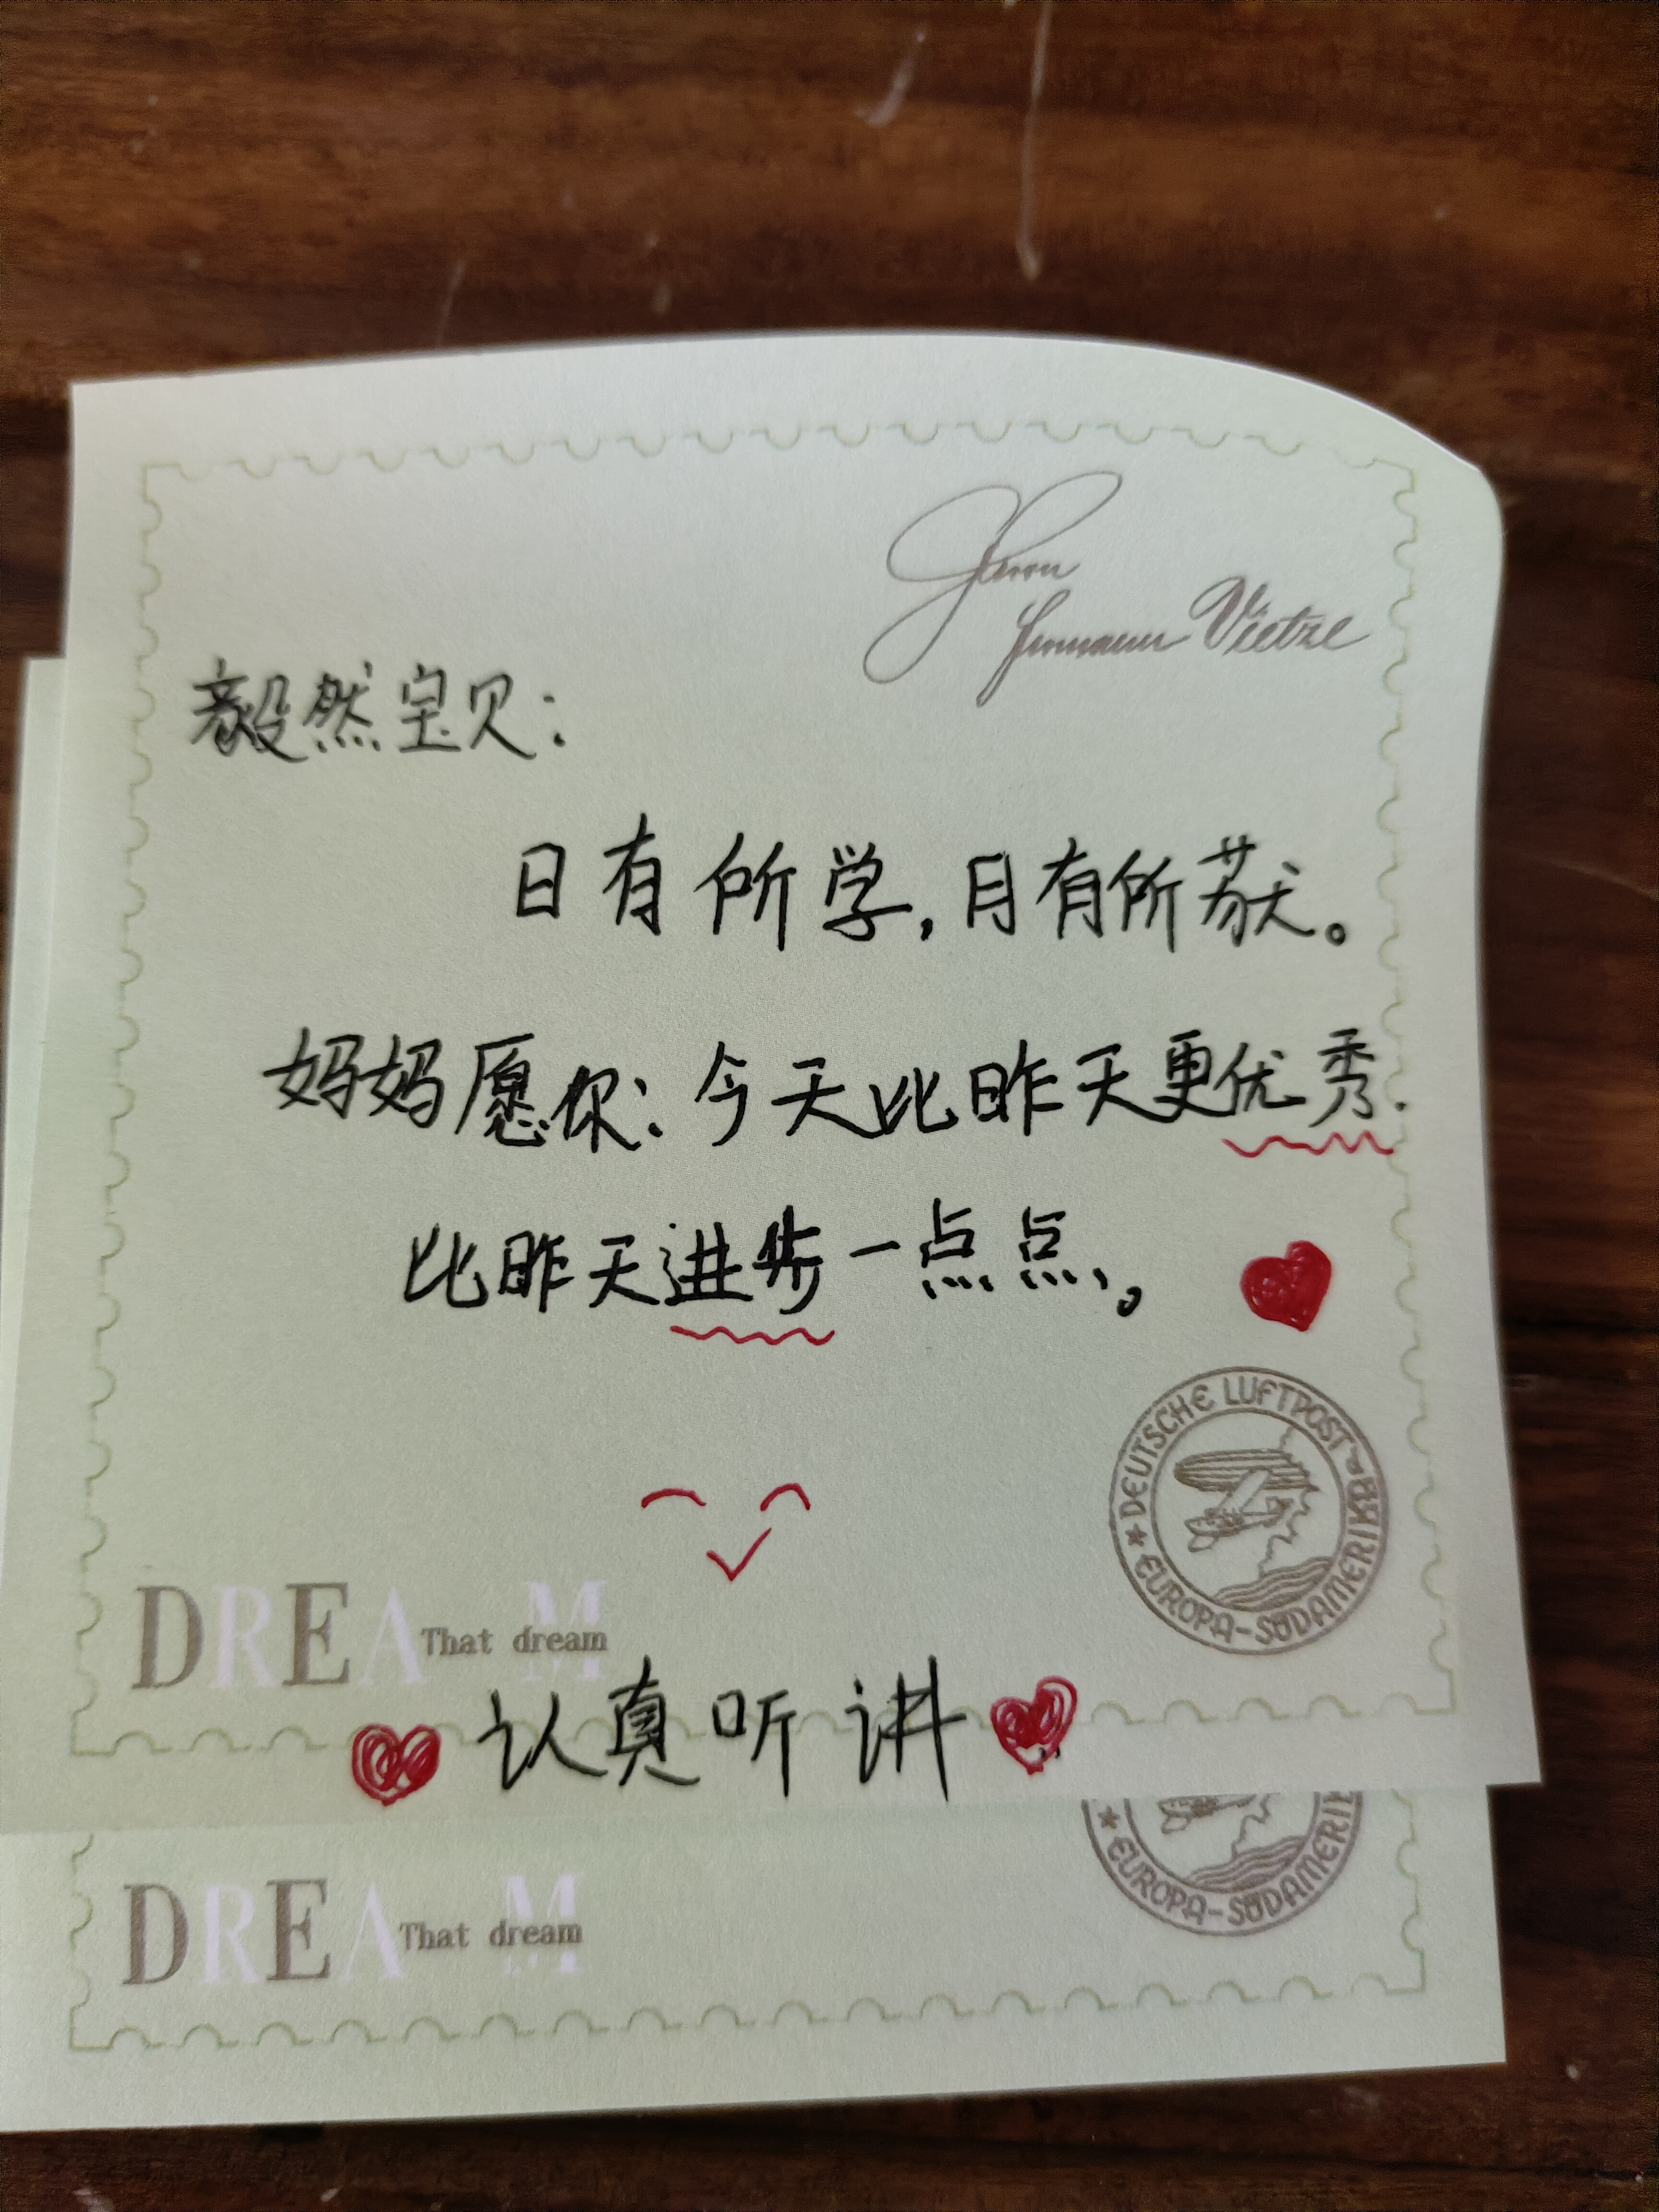 Herrn
Hermann Vietze
毅然宝贝:
日有所学,月有所获。
妈妈愿你:今天比昨天更优秀.
比昨天进步一点点。
DEUTSCHE LUFTPOST
* EUROPA-SÜDAMERIKA
DREAM
That dream
认真听讲
* EUROPA-SÜDAMERIK
DREAM
That dream